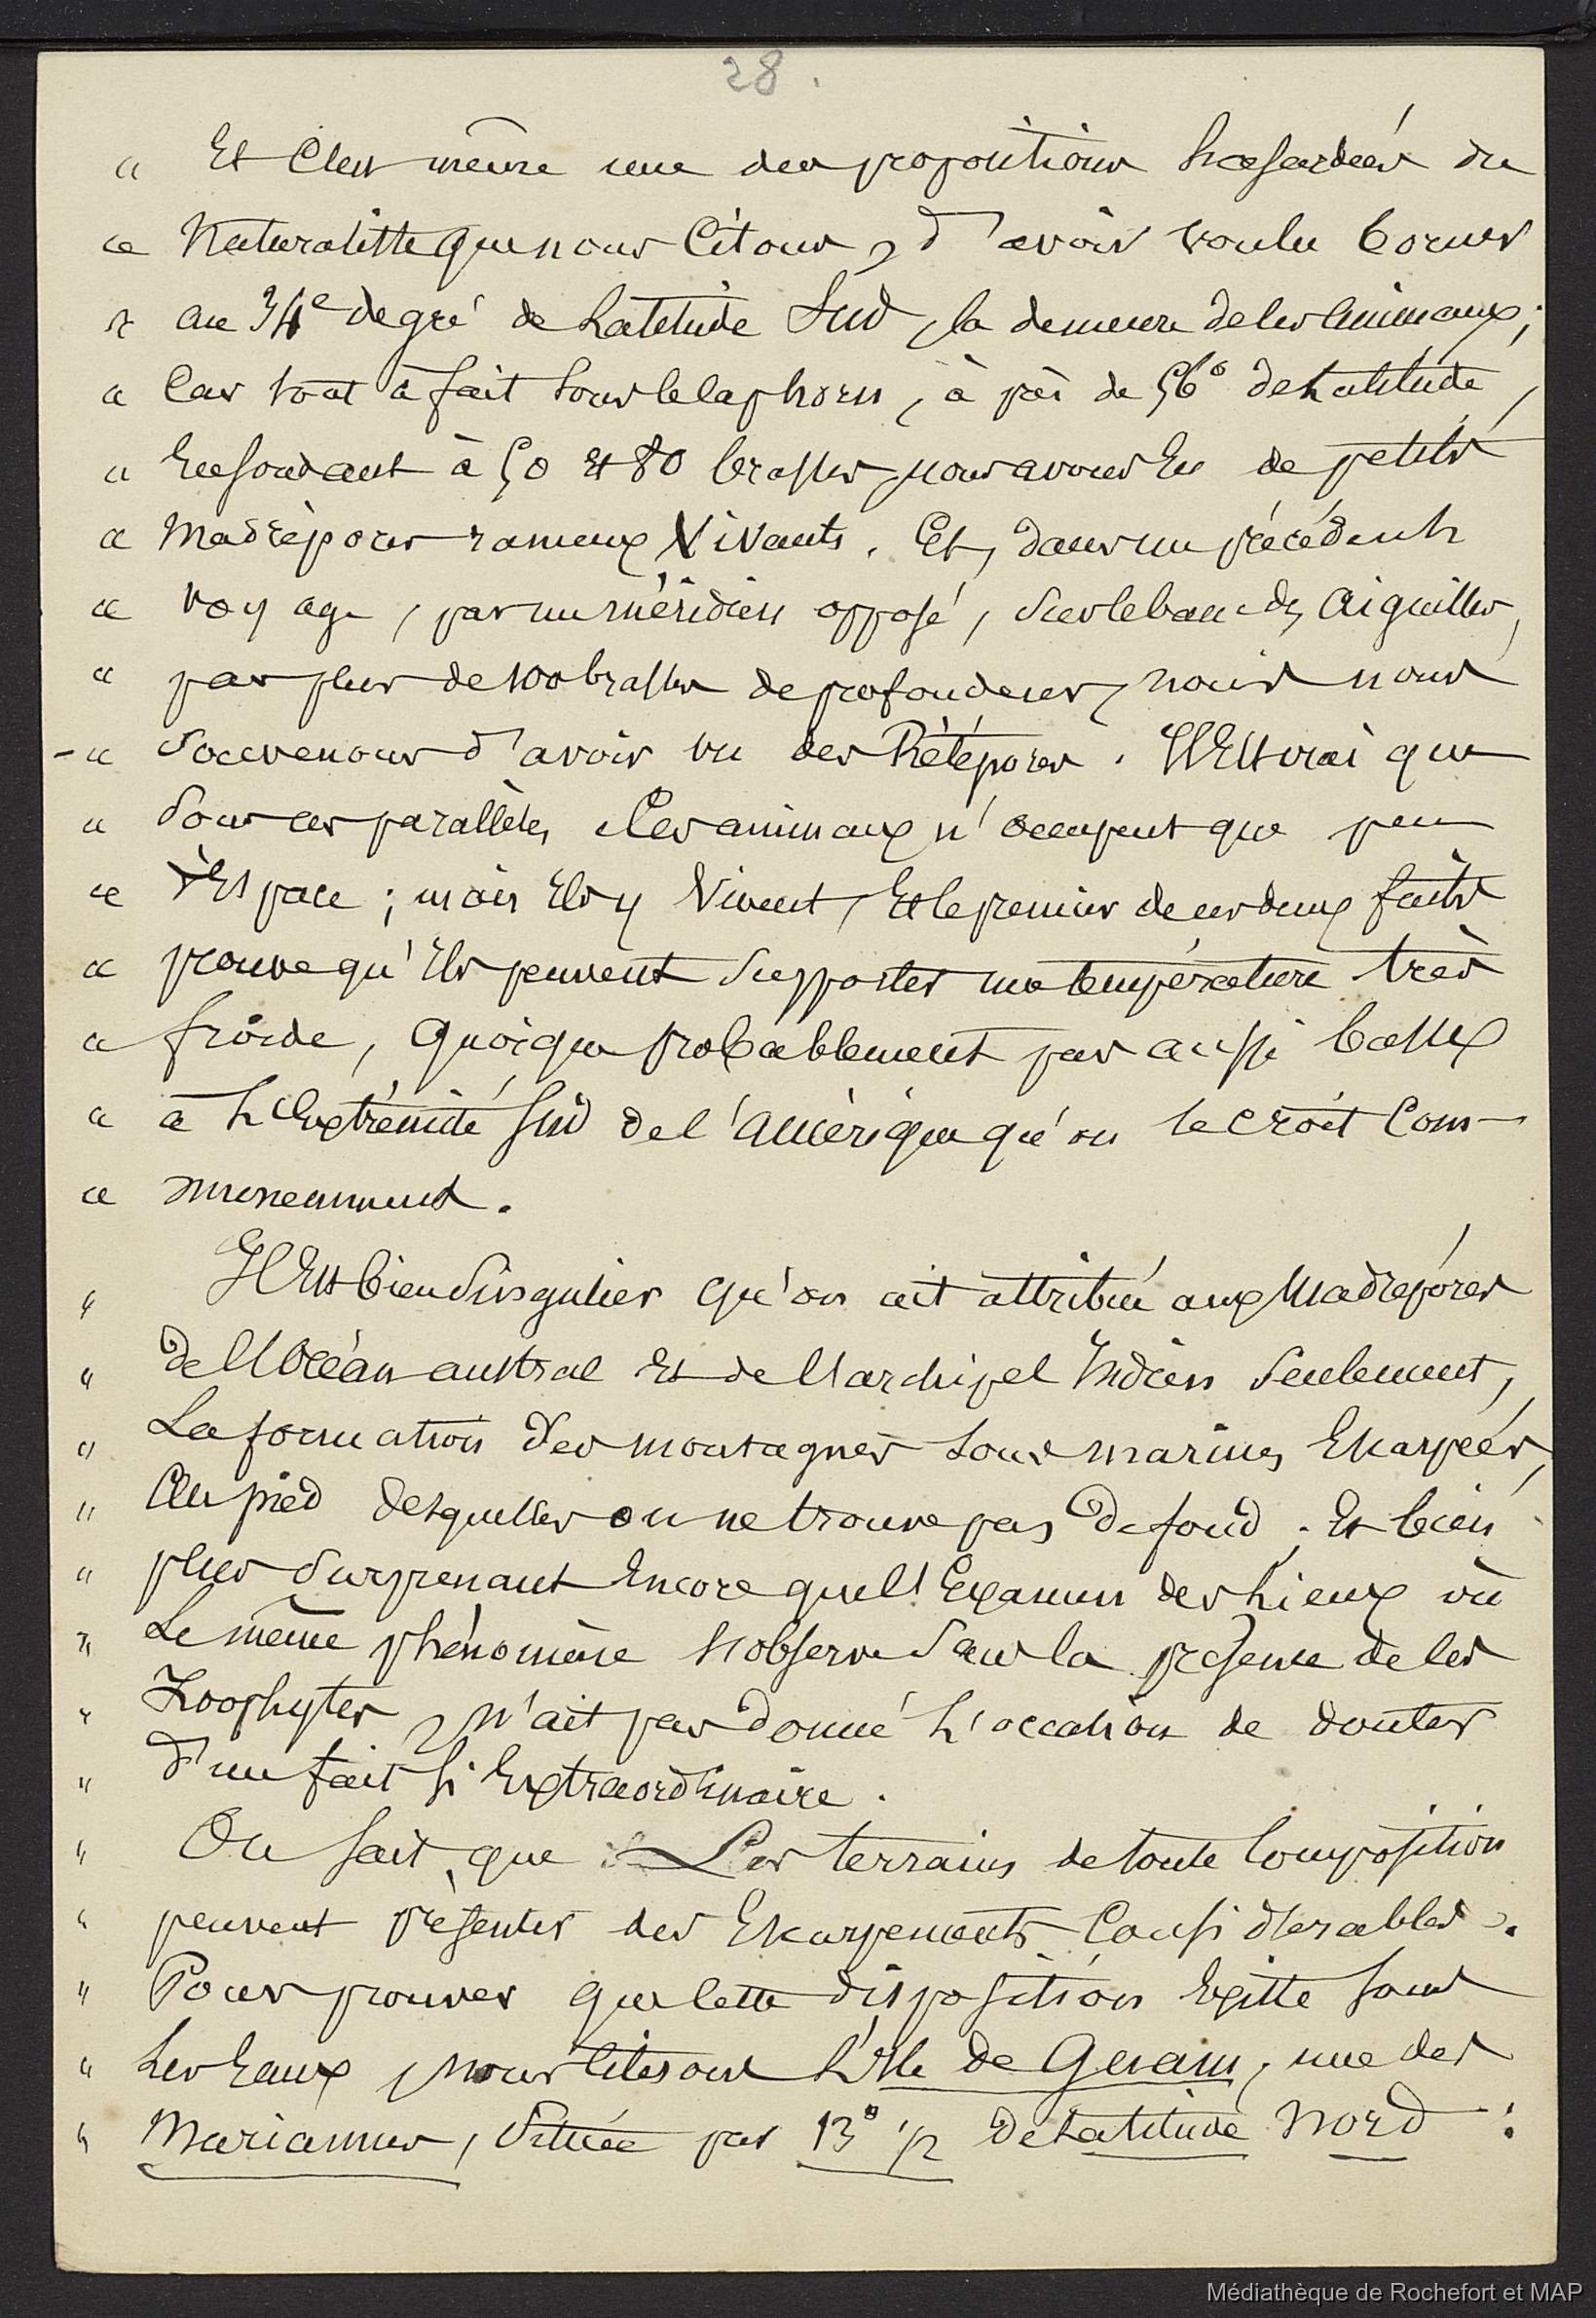 28.
« Et C'est même une des propositions hasardées du
« Naturaliste que nous Citons, d'avoir voulu borner
« au 34e degré de Latitude Sud, la demeure de ces animaux ;
« Car tout à fait sous le Cap horn, à près de 56° de Latitude,
« En sondant à 50 et 80 brasses, nous avons Eu de petits
« Madrépores rameux Vivants. Et, dans un précédent
« voyage, par un méridien opposé, sur le banc des Aiguilles,
« par plus de 100 brasses de profondeur, nous nous
« souvenons d'avoir vu des Rétépores. Il Est vrai que
« sous ces parallèles, Ces animaux n'occupent que peu
« d'Espace ; mais Ils y Vivent, Et le premier de ces deux faits
« prouve qu'Ils peuvent supporter une température très
« froide, quoique probablement pas aussi basse
« à L'Extrémité Sud de l'Amérique qu'on le croit Com-
« munément.
« Il Est bien singulier qu'on ait attribué aux Madrépores
« de l'Océan austral Et de l'archipel Indien seulement,
« La formation des montagnes sous marines Escarpées,
« Au pied desquelles on ne trouve pas de fond ; Et bien
« plus surprenant Encore que l'Examen des Lieux où
« Le même phénomène s'observe sans la présence de ces
« Zoophytes, n'ait pas donné L'occasion de douter
« d'un fait si Extraordinaire.
« On sait que Les terrains de toute Composition
« peuvent présenter des Escarpements Considérables.
« Pour prouver que cette disposition Existe sous
« Les Eaux, nous citerons L'Ile de Guam, une des
« Mariannes, située par 13° 1/2 de Latitude Nord :
Médiathèque de Rochefort et MAP